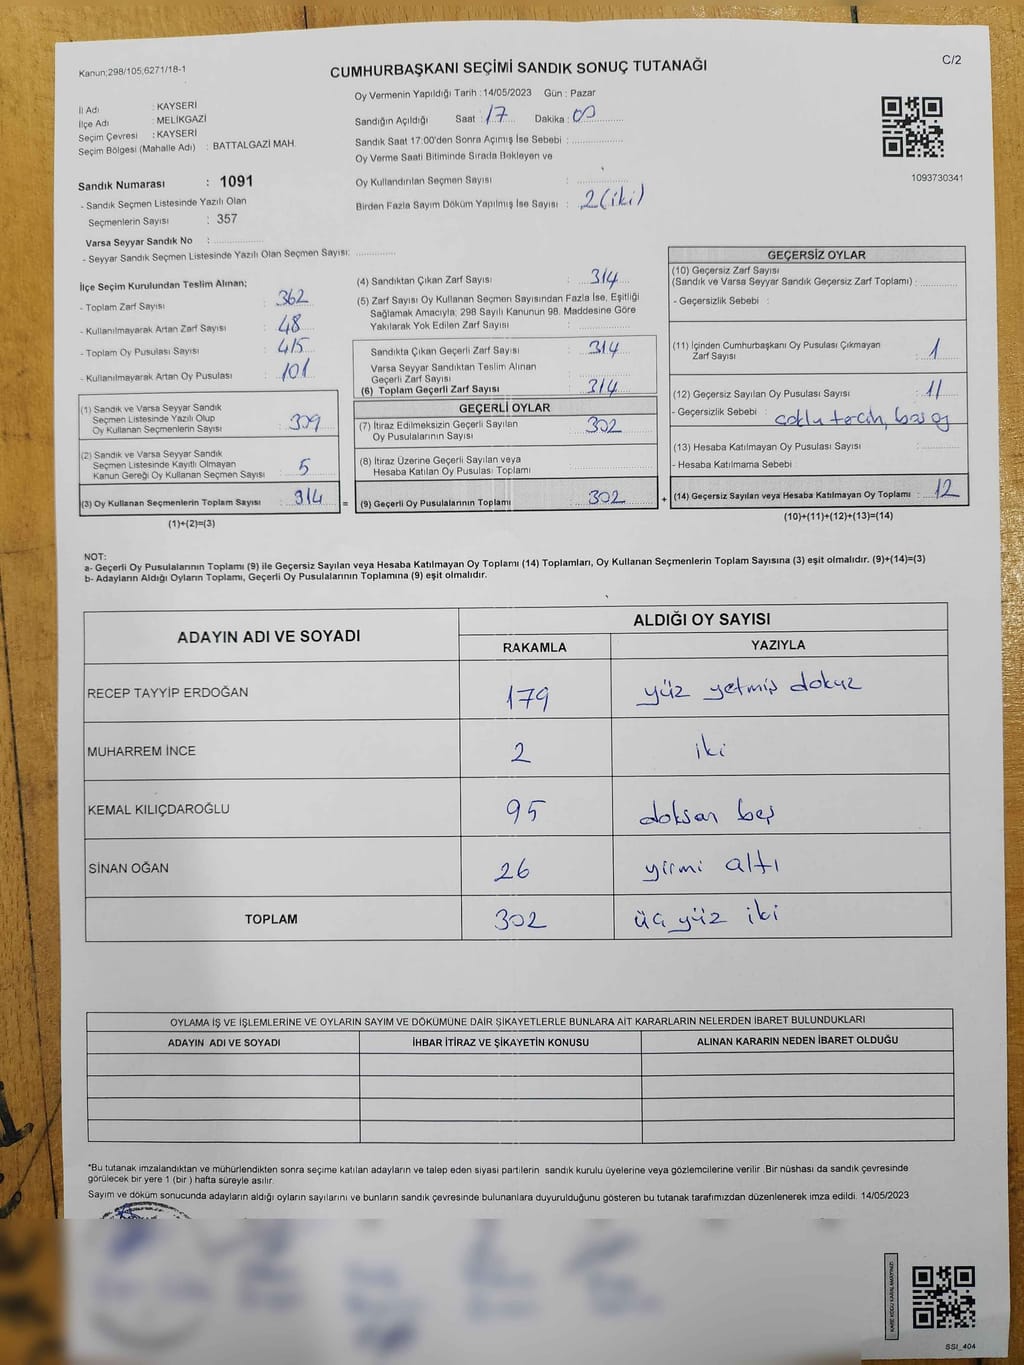 Kanun;298/105,6271/18-1
CUMHURBAŞKANI SEÇİMİ SANDIK SONUÇ TUTANAĞI
C/2
Oy Vermenin Yapıldığı Tarih : 14/05/2023 Gün : Pazar
İl Adı : KAYSERİ
İlçe Adı : MELİKGAZİ
Seçim Çevresi : KAYSERİ
Seçim Bölgesi (Mahalle Adı) : BATTALGAZİ MAH.
Sandığın Açıldığı Saat : 17 Dakika : 00
Sandık Saat 17:00'den Sonra Açımış İse Sebebi :
Oy Verme Saati Bitiminde Sırada Bekleyen ve
Oy Kullandırılan Seçmen Sayısı :
Birden Fazla Sayım Döküm Yapılmış İse Sayısı : 2 (iki)
1093730341
Sandık Numarası : 1091
- Sandık Seçmen Listesinde Yazılı Olan
Seçmenlerin Sayısı : 357
Varsa Seyyar Sandık No :
- Seyyar Sandık Seçmen Listesinde Yazılı Olan Seçmen Sayısı:
İlçe Seçim Kurulundan Teslim Alınan;
- Toplam Zarf Sayısı : 362
- Kullanılmayarak Artan Zarf Sayısı : 48
- Toplam Oy Pusulası Sayısı : 415
- Kullanılmayarak Artan Oy Pusulası : 101
(1) Sandık ve Varsa Seyyar Sandık
Seçmen Listesinde Yazılı Olup
Oy Kullanan Seçmenlerin Sayısı : 309
(2) Sandık ve Varsa Seyyar Sandık
Seçmen Listesinde Kayıtlı Olmayan
Kanun Gereği Oy Kullanan Seçmen Sayısı : 5
(3) Oy Kullanan Seçmenlerin Toplam Sayısı : 314 =
(1)+(2)=(3)
(4) Sandıktan Çıkan Zarf Sayısı : 314
(5) Zarf Sayısı Oy Kullanan Seçmen Sayısından Fazla İse, Eşitliği
Sağlamak Amacıyla; 298 Sayılı Kanunun 98. Maddesine Göre
Yakılarak Yok Edilen Zarf Sayısı :
Sandıkta Çıkan Geçerli Zarf Sayısı : 314
Varsa Seyyar Sandıktan Teslim Alınan
Geçerli Zarf Sayısı :
(6) Toplam Geçerli Zarf Sayısı : 314
GEÇERLİ OYLAR
(7) İtiraz Edilmeksizin Geçerli Sayılan
Oy Pusulalarının Sayısı : 302
(8) İtiraz Üzerine Geçerli Sayılan veya
Hesaba Katılan Oy Pusulası Toplamı :
(9) Geçerli Oy Pusulalarının Toplamı : 302 +
GEÇERSİZ OYLAR
(10) Geçersiz Zarf Sayısı
(Sandık ve Varsa Seyyar Sandık Geçersiz Zarf Toplamı) :
- Geçersizlik Sebebi :
(11) İçinden Cumhurbaşkanı Oy Pusulası Çıkmayan
Zarf Sayısı : 1
(12) Geçersiz Sayılan Oy Pusulası Sayısı : 11
- Geçersizlik Sebebi : çoklu tercih, boş oy
(13) Hesaba Katılmayan Oy Pusulası Sayısı :
- Hesaba Katılmama Sebebi
(14) Geçersiz Sayılan veya Hesaba Katılmayan Oy Toplamı : 12
(10)+(11)+(12)+(13)=(14)
NOT:
a- Geçerli Oy Pusulalarının Toplamı (9) ile Geçersiz Sayılan veya Hesaba Katılmayan Oy Toplamı (14) Toplamları, Oy Kullanan Seçmenlerin Toplam Sayısına (3) eşit olmalıdır. (9)+(14)=(3)
b- Adayların Aldığı Oyların Toplamı, Geçerli Oy Pusulalarının Toplamına (9) eşit olmalıdır.
ADAYIN ADI VE SOYADI
ALDIĞI OY SAYISI
RAKAMLA YAZIYLA
RECEP TAYYİP ERDOĞAN 179 yüz yetmiş dokuz
MUHARREM İNCE 2 iki
KEMAL KILIÇDAROĞLU 95 doksan beş
SİNAN OĞAN 26 yirmi altı
TOPLAM 302 üç yüz iki
OYLAMA İŞ VE İŞLEMLERİNE VE OYLARIN SAYIM VE DÖKÜMÜNE DAİR ŞİKAYETLERLE BUNLARA AİT KARARLARIN NELERDEN İBARET BULUNDUKLARI
ADAYIN ADI VE SOYADI İHBAR İTİRAZ VE ŞİKAYETİN KONUSU ALINAN KARARIN NEDEN İBARET OLDUĞU
*Bu tutanak imzalandıktan ve mühürlendikten sonra seçime katılan adayların ve talep eden siyasi partilerin sandık kurulu üyelerine veya gözlemcilerine verilir .Bir nüshası da sandık çevresinde
görülecek bir yere 1 (bir ) hafta süreyle asılır.
Sayım ve döküm sonucunda adayların aldığı oyların sayılarını ve bunların sandık çevresinde bulunanlara duyurulduğunu gösteren bu tutanak tarafımızdan düzenlenerek imza edildi. 14/05/2023
KARE KODU KARALAMAYINIZ!
SSI_404